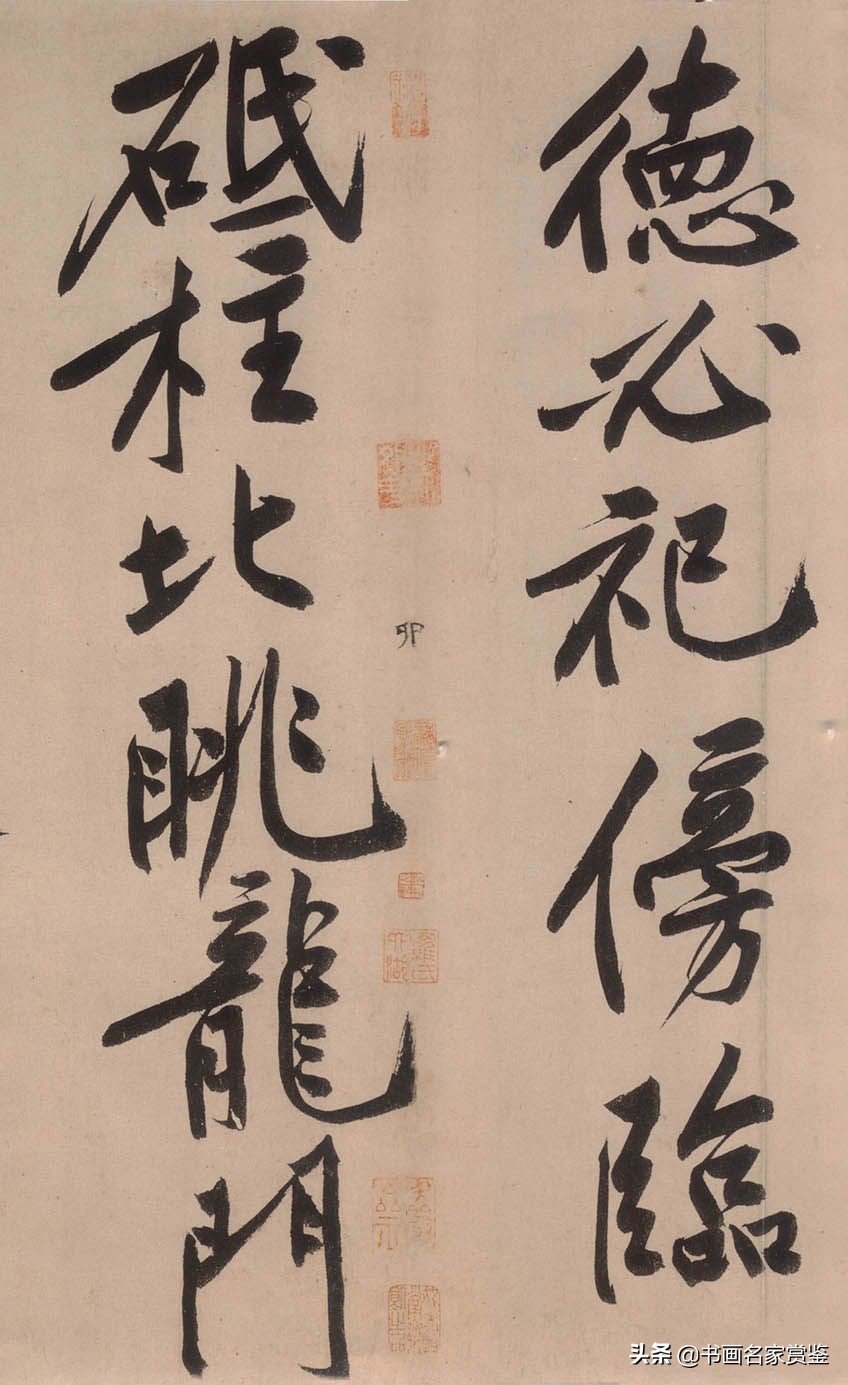 德必祀傍臨
砥柱北眺龍門
卯
头条 @书画名家赏鉴